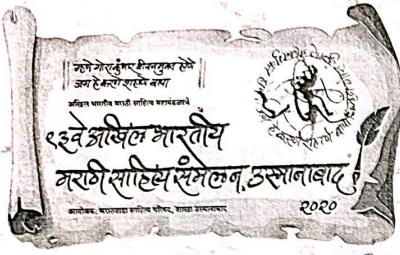 म्हणे गोरा कुंभार जीवनमुक्त होणे
जग हे करणे शहाणे बापा
अखिल भारतीय मराठी साहित्य महामंडळाचे
९३वे अखिल भारतीय
मराठी साहित्य संमेलन, उस्मानाबाद
आयोजक: मराठवाडा साहित्य परिषद, शाखा उस्मानाबाद
२०२०